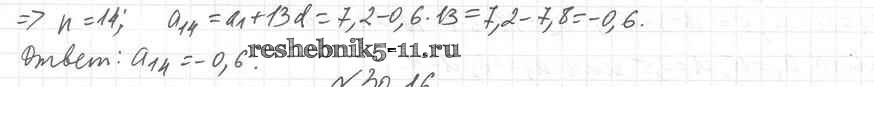 => n=14; a₁₄ = a₁+13d = 7,2-0,6·13 = 7,2-7,8 = -0,6.
Ответ: a₁₄ = -0,6.
reshebnik5-11.ru